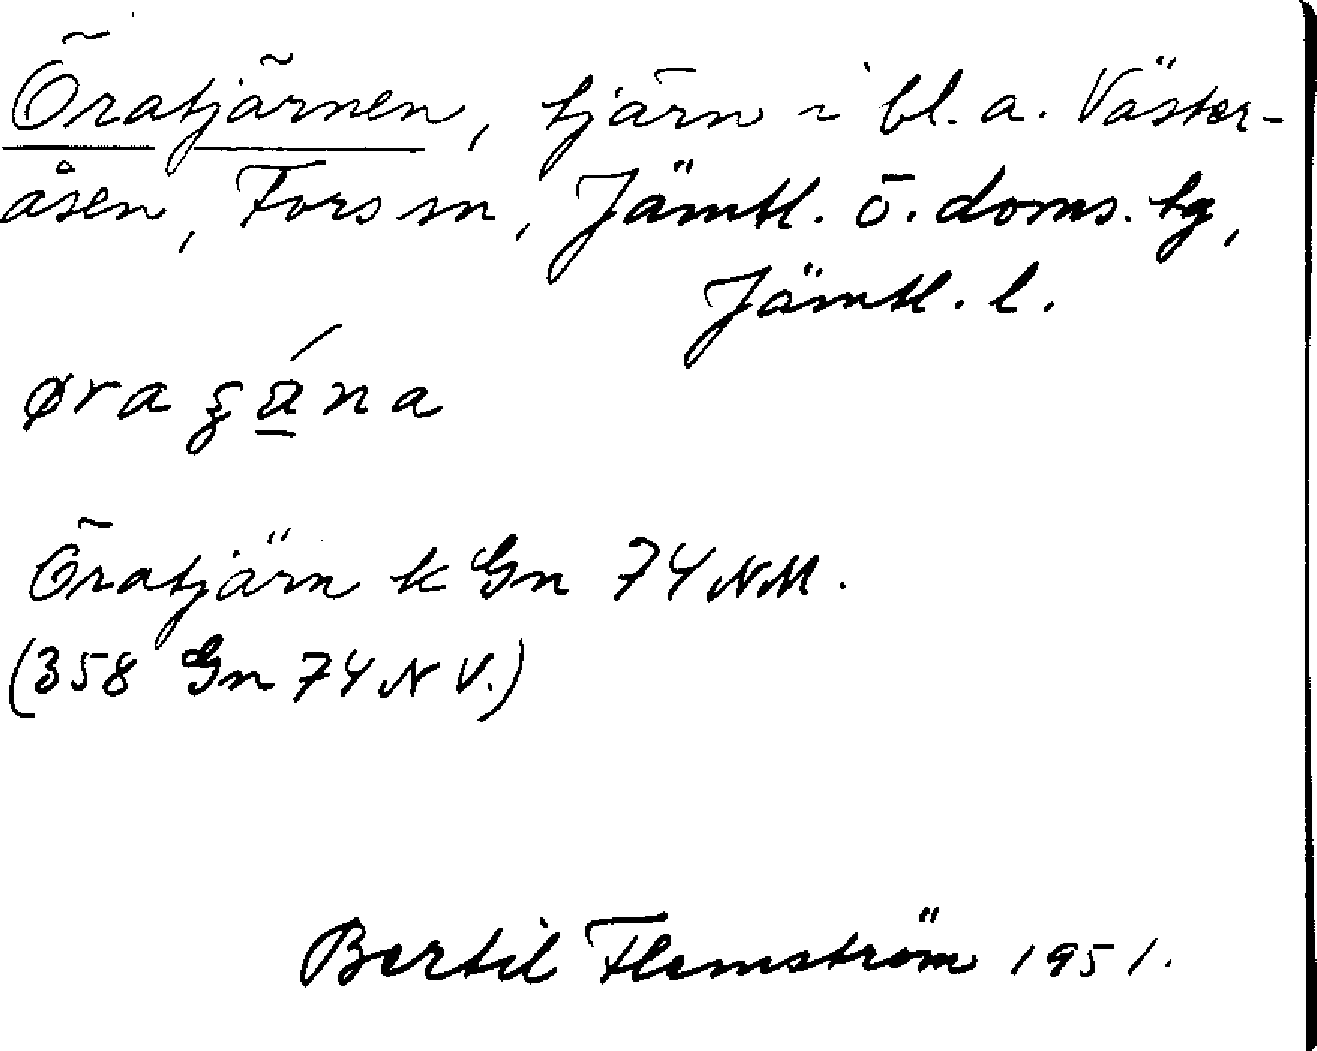 Öratjärnen, tjärn i bl. a. Väster-
åsen, Fors sn, Jämtl. ö. doms. hg,
Jämtl. l.
øra ʒána
Öratjärn k Gn 74 NM.
(358 Gn 74 NV.)
Bertil Flemström 1951.